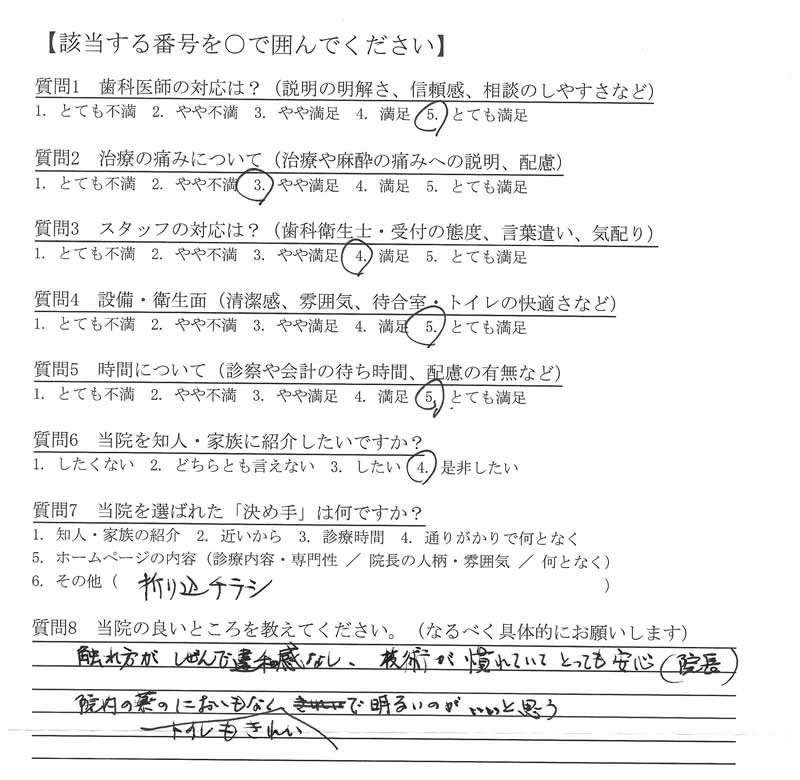 【該当する番号を〇で囲んでください】
質問1 歯科医師の対応は？（説明の明解さ、信頼感、相談のしやすさなど）
1. とても不満 2. やや不満 3. やや満足 4. 満足 5. とても満足
質問2 治療の痛みについて（治療や麻酔の痛みへの説明、配慮）
1. とても不満 2. やや不満 3. やや満足 4. 満足 5. とても満足
質問3 スタッフの対応は？（歯科衛生士・受付の態度、言葉遣い、気配り）
1. とても不満 2. やや不満 3. やや満足 4. 満足 5. とても満足
質問4 設備・衛生面（清潔感、雰囲気、待合室・トイレの快適さなど）
1. とても不満 2. やや不満 3. やや満足 4. 満足 5. とても満足
質問5 時間について（診察や会計の待ち時間、配慮の有無など）
1. とても不満 2. やや不満 3. やや満足 4. 満足 5. とても満足
質問6 当院を知人・家族に紹介したいですか？
1. したくない 2. どちらとも言えない 3. したい 4. 是非したい
質問7 当院を選ばれた「決め手」は何ですか？
1. 知人・家族の紹介 2. 近いから 3. 診療時間 4. 通りがかりで何となく
5. ホームページの内容（診療内容・専門性 ／ 院長の人柄・雰囲気 ／ 何となく）
6. その他（ 折り込チラシ ）
質問8 当院の良いところを教えてください。（なるべく具体的にお願いします）
触れ方が しぜんで違和感なし、技術が慣れていてとっても安心（院長）
院内の薬のにおいもなく で明るいのが いいと思う
トイレもきれい